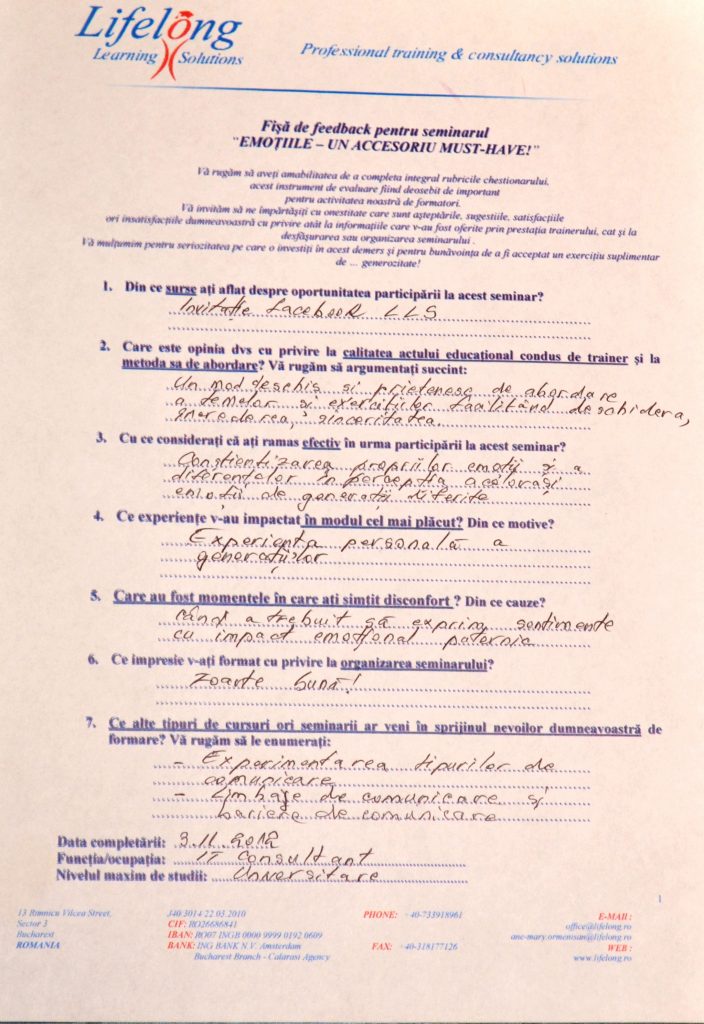 Lifelong
Learning Solutions
Professional training & consultancy solutions
Fișă de feedback pentru seminarul
"EMOȚIILE – UN ACCESORIU MUST-HAVE!"
Vă rugăm să aveți amabilitatea de a completa integral rubricile chestionarului,
acest instrument de evaluare fiind deosebit de important
pentru activitatea noastră de formatori.
Vă invităm să ne împărtășiți cu onestitate care sunt așteptările, sugestiile, satisfacțiile
ori insatisfacțiile dumneavoastră cu privire atât la informațiile care v-au fost oferite prin prestația trainerului, cat și la
desfășurarea sau organizarea seminarului .
Vă mulțumim pentru seriozitatea pe care o investiți în acest demers și pentru bunăvoința de a fi acceptat un exercițiu suplimentar
de ... generozitate!
1. Din ce surse ați aflat despre oportunitatea participării la acest seminar?
Invitație facebook LLS
2. Care este opinia dvs cu privire la calitatea actului educațional condus de trainer și la
metoda sa de abordare? Vă rugăm să argumentați succint:
Un mod deschis si prietenesc de abordare
a temelor si exercițiilor facilitând deschidera,
increderea, sinceritatea.
3. Cu ce considerați că ați ramas efectiv în urma participării la acest seminar?
Conștientizarea propriilor emoții și a
diferențelor în percepția acelorași
emoții de generații diferite
4. Ce experiențe v-au impactat în modul cel mai plăcut? Din ce motive?
Experiența personală a
generațiilor
5. Care au fost momentele în care ați simțit disconfort ? Din ce cauze?
când a trebuit să exprim sentimente
cu impact emoțional puternic
6. Ce impresie v-ați format cu privire la organizarea seminarului?
Foarte bună!
7. Ce alte tipuri de cursuri ori seminarii ar veni în sprijinul nevoilor dumneavoastră de
formare? Vă rugăm să le enumerați:
- Experimentarea tipurilor de
comunicare
- Limbaje de comunicare și
bariere de comunicare
Data completării: 3.11.2012
Funcția/ocupația: IT Consultant
Nivelul maxim de studii: Universitare
1
13 Rmnicu Vilcea Street,
Sector 3
Bucharest
ROMANIA
J40/3014 22.03.2010
CIF: RO26686841
IBAN: RO07 INGB 0000 9999 0192 0609
BANK: ING BANK N.V. Amsterdam
Bucharest Branch - Calarasi Agency
PHONE: +40-733918961
FAX: +40-318177126
E-MAIL :
office@lifelong.ro
anc-mary.ormenisan@lifelong.ro
WEB :
www.lifelong.ro